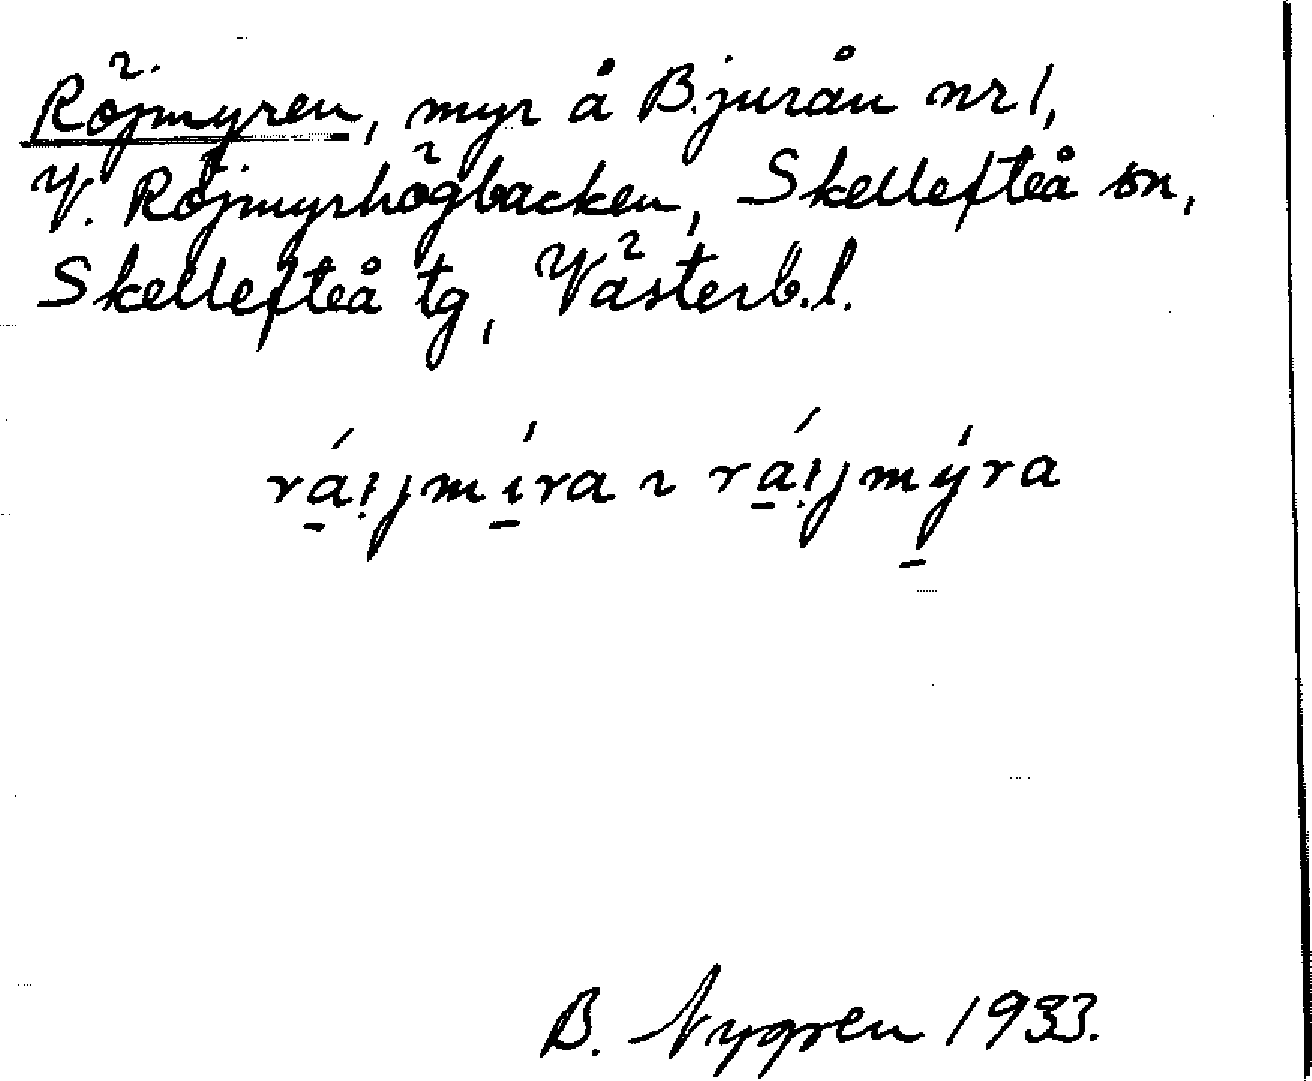 Röjmyren, myr å Bjurån nr 1,
V. Röjmyrhögbacken, Skellefteå sn,
Skellefteå tg, Västerb.l.
rá̱ijmí̱ra ~ rá̱ijmý̱ra
B. Nygren 1933.